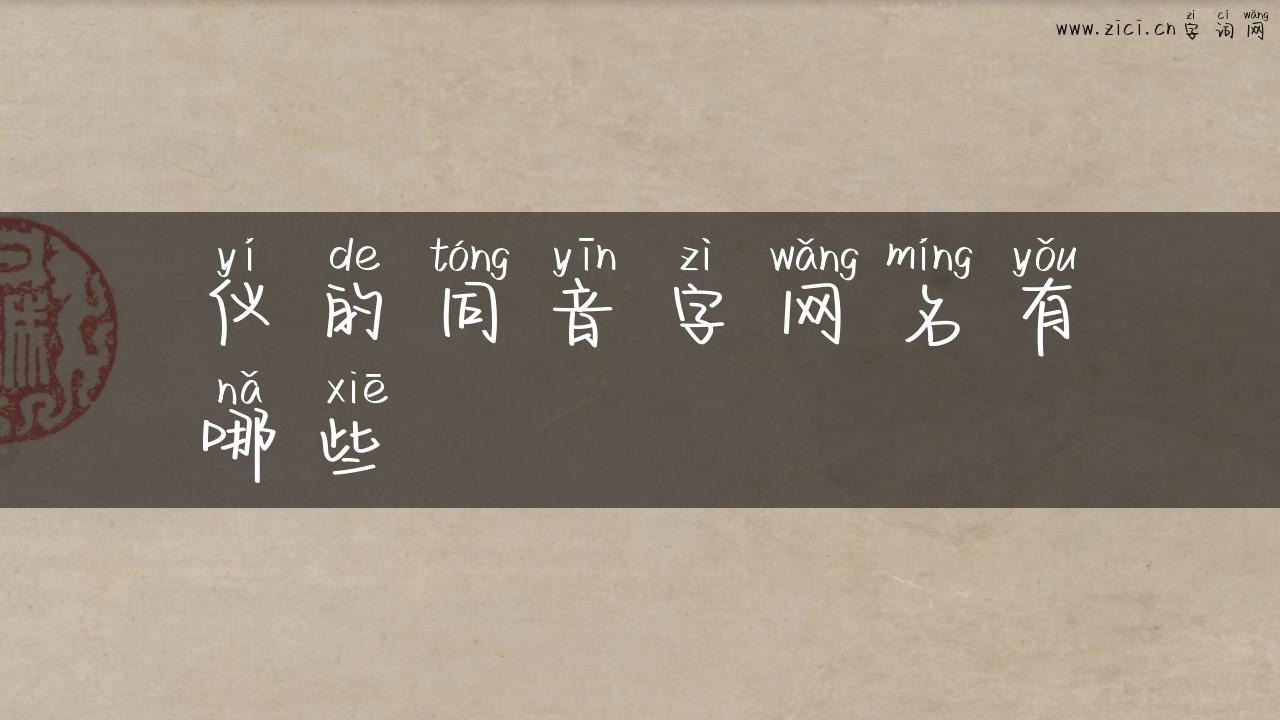 zì cí wǎng
www.zici.cn 字词网
yí de tóng yīn zì wǎng míng yǒu
仪的同音字网名有
nǎ xiē
哪些